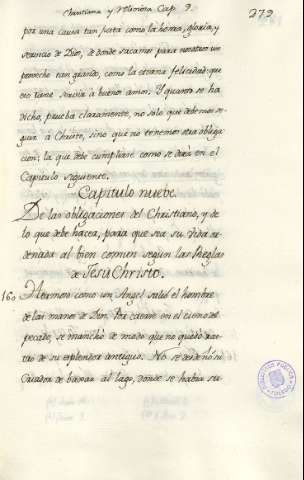 Christiana y Mistica Cap. 9. 279
por una causa tan justa como la honra, gloria, y
servicio de Dios, de donde sacamos para nosotros un
provecho tan grande, como la eterna felicidad: que
esto tiene servir à buenos amos. Y quanto se ha
dicho, prueba claramente, no solo que debemos se-
guir à Christo, sino que no tenemos otra obliga-
cion; la que debe cumplirse como se dirà en el
Capitulo siguiente.
Capitulo nuebe.
De las obligaciones del Christiano, y de
lo que debe hacer, para que sea su vida or-
denada al bien comun segun las Reglas
de Jesu Christo.
160 Hermoso como un Angel saliò el hombre
de las manos de Dios. Por caerse en el cieno del
pecado, se manchò de modo que no quedò ras-
tro de su esplendor antiguo. No se desdeñò su
Criador de baxar al lago, donde se habia su-
BIBLIOTECA PUBLICA
TOLEDO